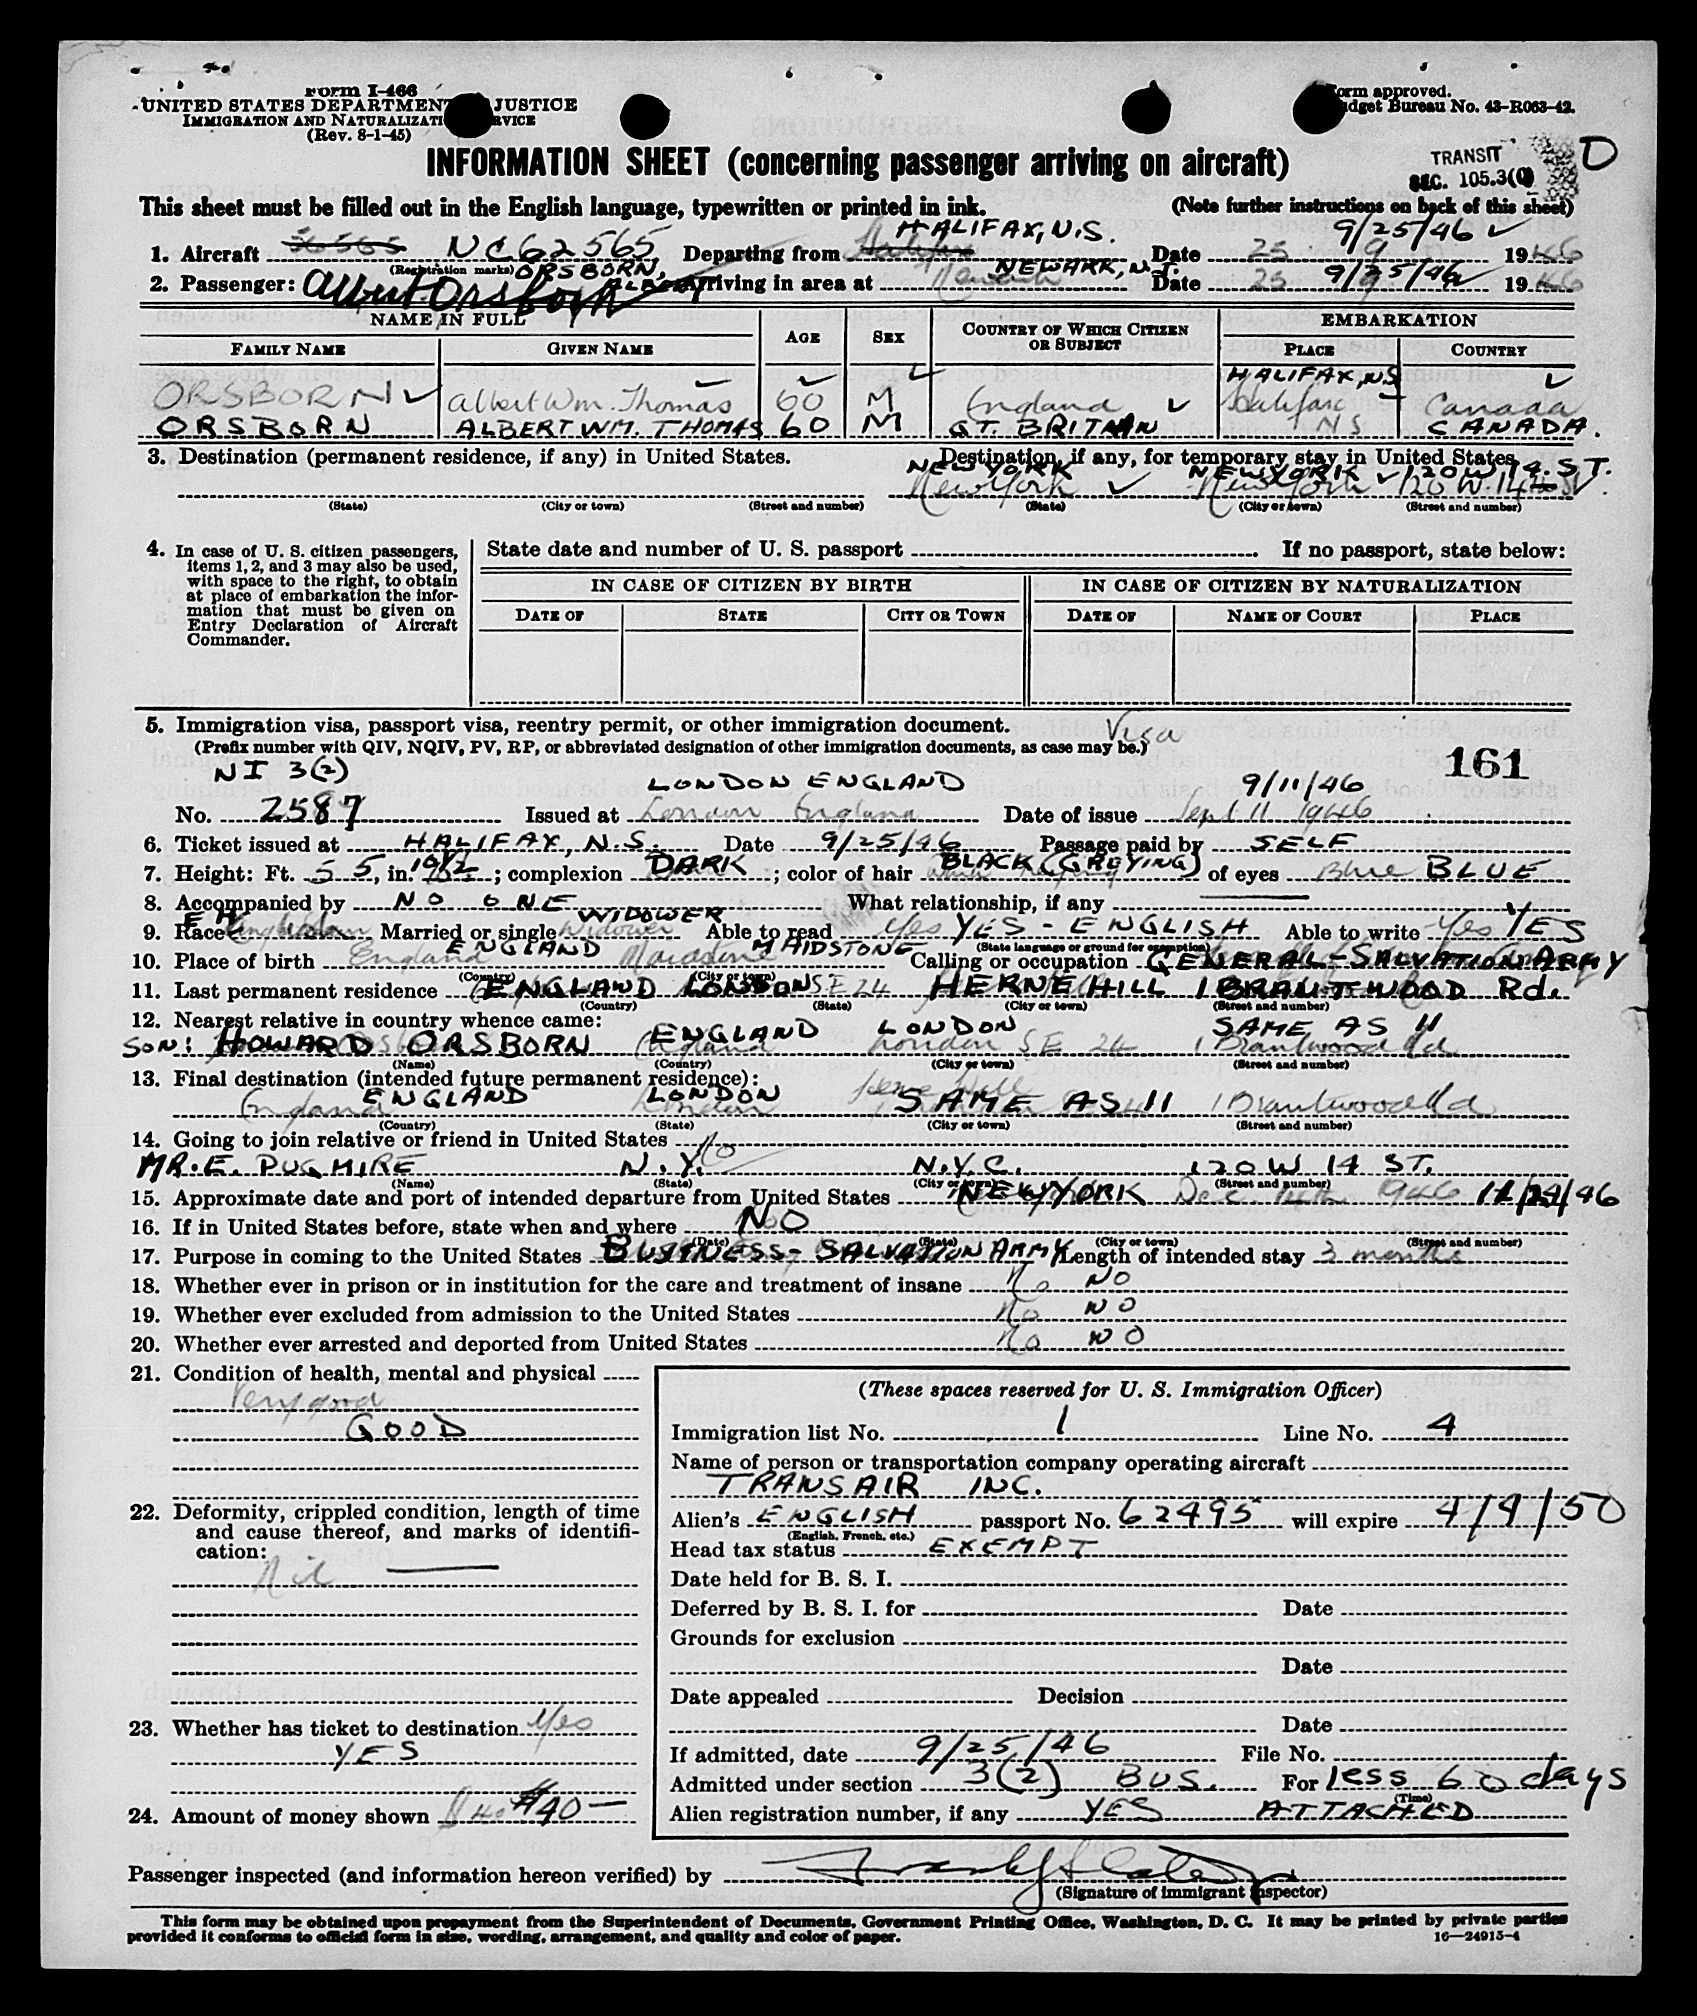 Form I-466
UNITED STATES DEPARTMENT JUSTICE
IMMIGRATION AND NATURALIZATI RVICE
(Rev. 8-1-45)
orm approved.
dget Bureau No. 43-R063-42.
INFORMATION SHEET (concerning passenger arriving on aircraft)
TRANSIT
SEC. 105.3(
D
This sheet must be filled out in the English language, typewritten or printed in ink.
(Note further instructions on back of this sheet)
HALIFAX, N.S. 9/25/46
1. Aircraft 56565 NC62565 Departing from Halifax Date 25 9 1946
(Registration marks) ORSBORN, NEWARK, N.J. 9/25/46
2. Passenger: Albert Orsborn Arriving in area at Newark Date 25 9 1946
NAME IN FULL AGE SEX COUNTRY OF WHICH CITIZEN OR SUBJECT EMBARKATION
FAMILY NAME GIVEN NAME PLACE COUNTRY
HALIFAX, N.S.
ORSBORN Albert Wm. Thomas 60 M England Halifax Canada
ORSBORN ALBERT WM. THOMAS 60 M GT. BRITAIN N S CANADA.
3. Destination (permanent residence, if any) in United States. Destination, if any, for temporary stay in United States
NEW YORK NEW YORK 120 W. 14. ST.
New York New York 120 W. 14 St.
(State) (City or town) (Street and number) (State) (City or town) (Street and number)
4. In case of U. S. citizen passengers, items 1, 2, and 3 may also be used, with space to the right, to obtain at place of embarkation the information that must be given on Entry Declaration of Aircraft Commander.
State date and number of U. S. passport If no passport, state below:
IN CASE OF CITIZEN BY BIRTH IN CASE OF CITIZEN BY NATURALIZATION
DATE OF STATE CITY OR TOWN DATE OF NAME OF COURT PLACE
5. Immigration visa, passport visa, reentry permit, or other immigration document. Visa
(Prefix number with QIV, NQIV, PV, RP, or abbreviated designation of other immigration documents, as case may be.)
161
NI 3(2) LONDON ENGLAND 9/11/46
No. 2587 Issued at London England Date of issue Sept 11 1946
6. Ticket issued at HALIFAX, N.S. Date 9/25/46 Passage paid by SELF
7. Height: Ft. 5 5, in. 10 1/2; complexion DARK; color of hair BLACK (GREYING) of eyes Blue BLUE
8. Accompanied by NO ONE What relationship, if any
9. Race Married or single Widower WIDOWER Able to read Yes YES - ENGLISH Able to write Yes YES
(State language or ground for exemption)
10. Place of birth England ENGLAND Maidstone MAIDSTONE Calling or occupation GENERAL - SALVATION ARMY
(Country) (City or town)
11. Last permanent residence ENGLAND LONDON SE 24 HERNE HILL 1 BRANTWOOD Rd.
(Country) (State) (City or town) (Street and number)
12. Nearest relative in country whence came:
ENGLAND LONDON SAME AS 11
SON: HOWARD ORSBORN England London SE 24 1 Brantwood Rd
(Name) (Country) (City or town) (Street and number)
13. Final destination (intended future permanent residence):
England ENGLAND London LONDON Herne Hill SAME AS 11 1 Brantwood Rd
(Country) (State) (City or town) (Street and number)
14. Going to join relative or friend in United States No
MR. E. PUGMIRE N.Y. N.Y.C. 120 W 14 ST.
(Name) (State) (City or town) (Street and number)
15. Approximate date and port of intended departure from United States NEW YORK Dec. 1946 /46
16. If in United States before, state when and where NO
(Date) (State) (City or town) (Street and number)
17. Purpose in coming to the United States BUSINESS - SALVATION ARMY Length of intended stay 3 months
18. Whether ever in prison or in institution for the care and treatment of insane No NO
19. Whether ever excluded from admission to the United States No NO
20. Whether ever arrested and deported from United States No NO
21. Condition of health, mental and physical
Very good
GOOD
22. Deformity, crippled condition, length of time and cause thereof, and marks of identification:
Nil
23. Whether has ticket to destination Yes
YES
24. Amount of money shown $40 $40—
(These spaces reserved for U. S. Immigration Officer)
Immigration list No. 1 Line No. 4
Name of person or transportation company operating aircraft
TRANSAIR INC.
Alien's ENGLISH passport No. 62495 will expire 4/9/50
(English, French, etc.)
Head tax status EXEMPT
Date held for B. S. I.
Deferred by B. S. I. for Date
Grounds for exclusion
Date
Date appealed Decision
Date
If admitted, date 9/25/46 File No.
Admitted under section 3(2) BUS. For less 60 days
(Time)
Alien registration number, if any YES ATTACHED
Passenger inspected (and information hereon verified) by
(Signature of immigrant inspector)
This form may be obtained upon prepayment from the Superintendent of Documents, Government Printing Office, Washington, D. C. It may be printed by private parties
provided it conforms to official form in size, wording, arrangement, and quality and color of paper.
16—24915-4